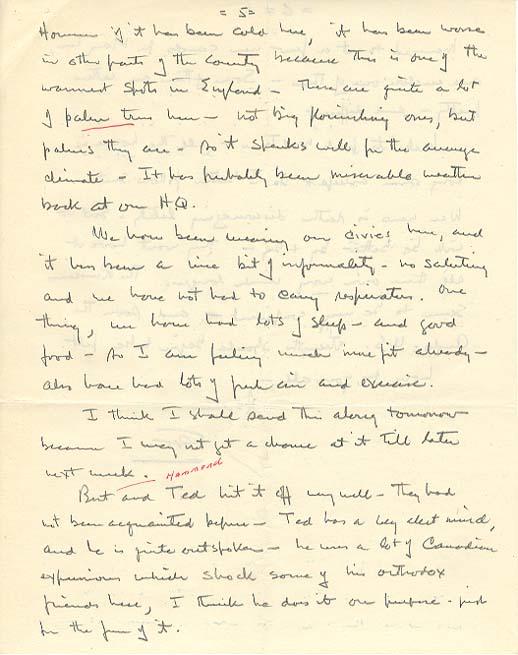 = 5 =
However if it has been cold here, it has been worse
in other parts of the country because this is one of the
warmest spots in England - there are quite a lot
of palm trees here - not big flourishing ones, but
palms they are - so it speaks well for the average
climate - It has probably been miserable weather
back at our H.Q.
We have been wearing our civies here, and
it has been a nice bit of informality - no saluting
and we have not had to carry respirators. One
thing, we have had lots of sleep - and good
food - so I am feeling much more fit already -
also have had lots of fresh air and exercise.
I think I shall send this along tomorrow
because I may not get a chance at it till later
next week.
Hammond
Bert and Ted hit it off very well - They had
not been acquainted before - Ted has a very alert mind,
and he is quite outspoken - he uses a lot of Canadian
expressions which shock some of his orthodox
friends here, I think he does it on purpose - just
for the fun of it.